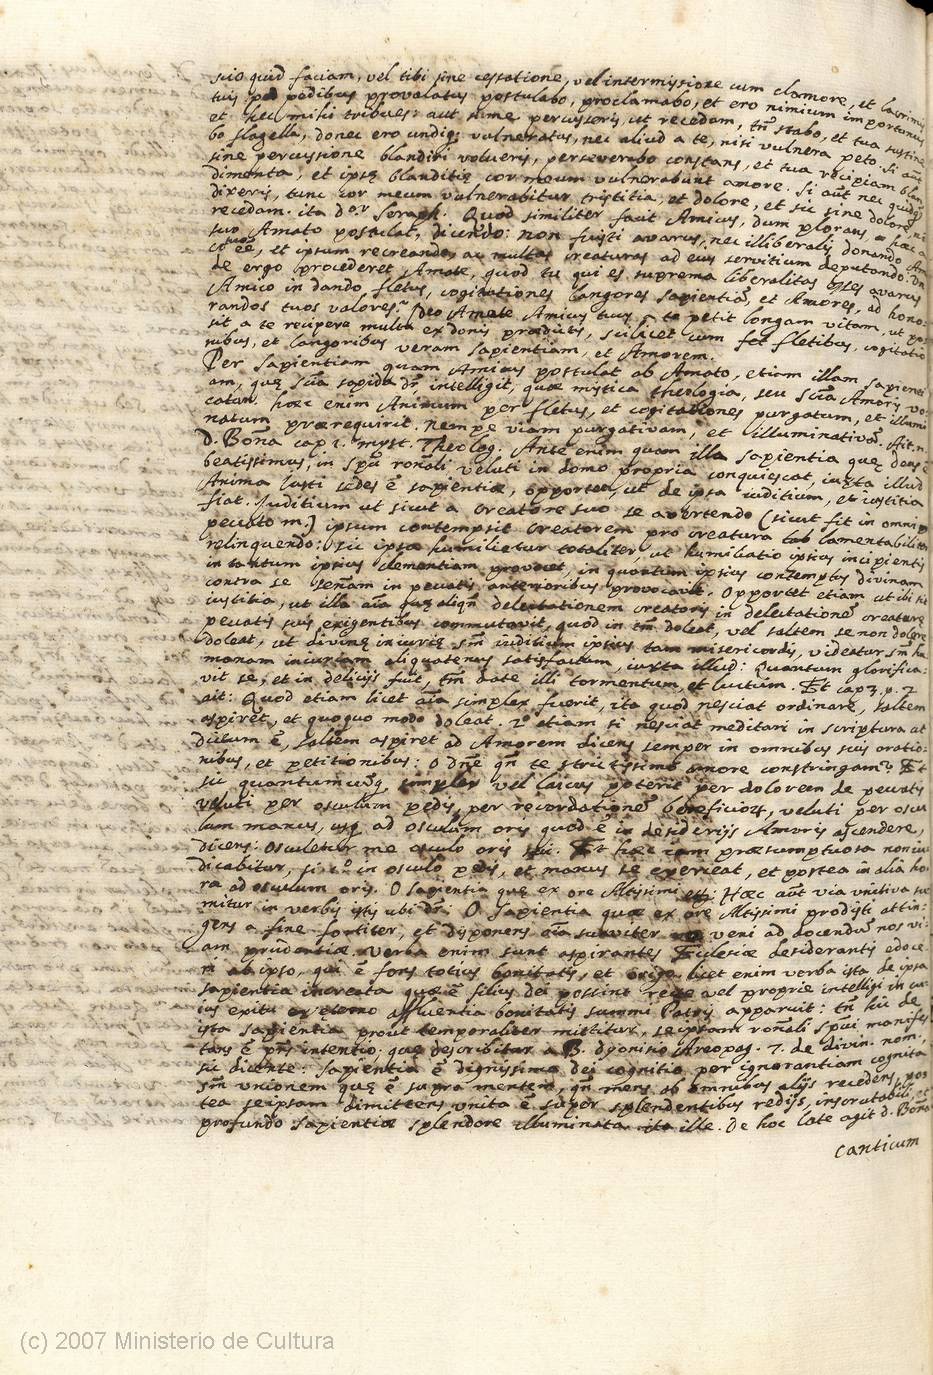 scio quid faciam, vel tibi sine cessatione, vel intermissione cum clamore, et lacrimis
tuis pedibus provolutus postulabo, proclamabo, et ero nimium importunus
et hec mihi tribues: aut sume percusseris, ut recedam, tñ stabo, et tua sustine
bo flagella, donec ero undiq; vulneratus, nec aliud a te, nisi vulnera peto. Si aũt
sine percussione blandiri volueris, perseverabo constans, et tua recipiam blan
dimenta, et ipsę blanditię cor meum vulnerabunt amore. Si aũt nec quidq̃
dixeris, tunc cor meum vulnerabitur tristitia, et dolore, et sic sine dolore nõ
recedam. ita Dor Seraph. Quod similiter facit Amicus, dum plorans, hęc a
suo Amato postulat, dicendo: non fuisti avarus, nec illiberalis donando Am
ico tuo eẽ, et ipsum recreando, ac multas creaturas ad eius servitium deputando. Un
de ergo procederet Amate, quod tu qui es suprema liberalitas esses avarus
Amico in dando fletus, cogitationes langores sapientiã, et Amores, ad hono
randos tuos valores? Ideo Amate Amicus tuus a te petit longam vitam, ut pos
sit a te recipere multa ex donis prædictis, scilicet cum fletibus, cogitatio
nibus, et langoribus veram sapientiam, et Amorem.
Per sapientiam quam Amicus postulat ab Amato, etiam illam sapienti
am, quę sũa sapida dr̃, intelligit, quæ mystica theologia, seu sũa Amoris vo
catur. hæc enim Animum per fletus, et cogitationes purgatum, et illumi
natum prærequirit. nempe viam purgativam, et illuminativã. Ait. n.
D. Bonã cap 1. myst. Theolog. Ante enim quam illa sapientia quę deus ẽ
beatissimus, in spũ roñali veluti in domo propria conquiescat, iuxta illud
Anima Iusti sedes ẽ sapientiæ, opportet, ut de ipsa iuditium, et iustitia
fiat. Iuditium ut sicut a Creatore suo se avertendo (sicut fit in omni
peccato m.) ipsum contempsit Creatorem pro creatura tam lamentabiliter
relinquendo: sic ipsa humilietur totaliter, ut humiliatio ipsius incipientis
in tantum ipsius clementiam provocet, in quantum ipsius contemptus divinam
contra se señam in pecatis anterioribus provocavit. Opportet etiam ut ibi sit
iustitia, ut illa aĩa quę aliqñ delectationem creatoris in delectationẽ creaturę
pecatis suis exigentibus commutavit, quod in tm̃ doleat, vel saltem se non dolere
doleat, ut divinę iniurię sm̃ iuditium ipsius tam misericordis, videatur sm̃ hu
manam incuriam aliquatenus satisfactum, iuxta illud: Quantum glorifica
vit se, et in delicijs fuit, tm̃ date illi tormentum, et luctum. Et cap 3. p. 2
ait: Quod etiam licet aĩa simplex fuerit, ita quod nesciat ordinare, saltem
aspiret, et quoquo modo doleat. 2º etiam si nesciat meditari in scriptura ut
dictum ẽ, saltem aspiret ad Amorem dicens semper in omnibus suis oratio
nibus, et petitionibus: O dñe qñ te strictissimo amore constringam? Et
sic quantumcũq; simplex vel laicus poterit per dolorem de pecatis
veluti per osculum pedis, per recordationẽ beneficiorũ, veluti per oscu
lum manus, usq; ad osculum oris quod ẽ in desiderijs Amoris ascendere,
dicens: Osculetur me osculo oris sui. Et hæc iam præsumptuosa non iu
dicabitur, si 1º in osculo pedis, et manus se exerceat, et postea in aliã ho
ra ad osculum oris. O Sapientia quę ex ore Altissimi etc: Hæc aũt via unitiva su
mitur in verbis istis ubi dr̃: O Sapientia quæ ex ore Altissimi prodijsti attin
gens a fine fortiter, et disponens oĩa suaviter veni ad docendũ nos vi
am prudentiæ. verba enim sunt aspirantes Ecclesiæ desiderantis edoce
ri ab ipso, qui ẽ fons totius bonitatis, et origo, licet enim verba ista de ipsa
sapientia increata quæ ẽ filius dei possint recte vel proprie intelligi in cu
ius exitu ex ęterno affluentia bonitatis summi Patris apparuit: tñ hic de
ista sapientia prout temporaliter mittitur, se ipsam roñali spũi manifes
tans ẽ pñs intentio; quę describitur a B. dyonisio Areopag. 7. de divin. nom.,
sic dicente: Sapientia ẽ dignissima dei cognitio per ignorantiam cognita
sm̃ unionem quę ẽ supra mentem, qñ mens ab omnibus alijs recedens, pos
tea seipsam dimittens unita ẽ super splendentibus redijs, inscrutabili, et
profundo sapientiæ splendore illuminata ita ille. De hoc late agit d. Bonã
Canticum
(c) 2007 Ministerio de Cultura